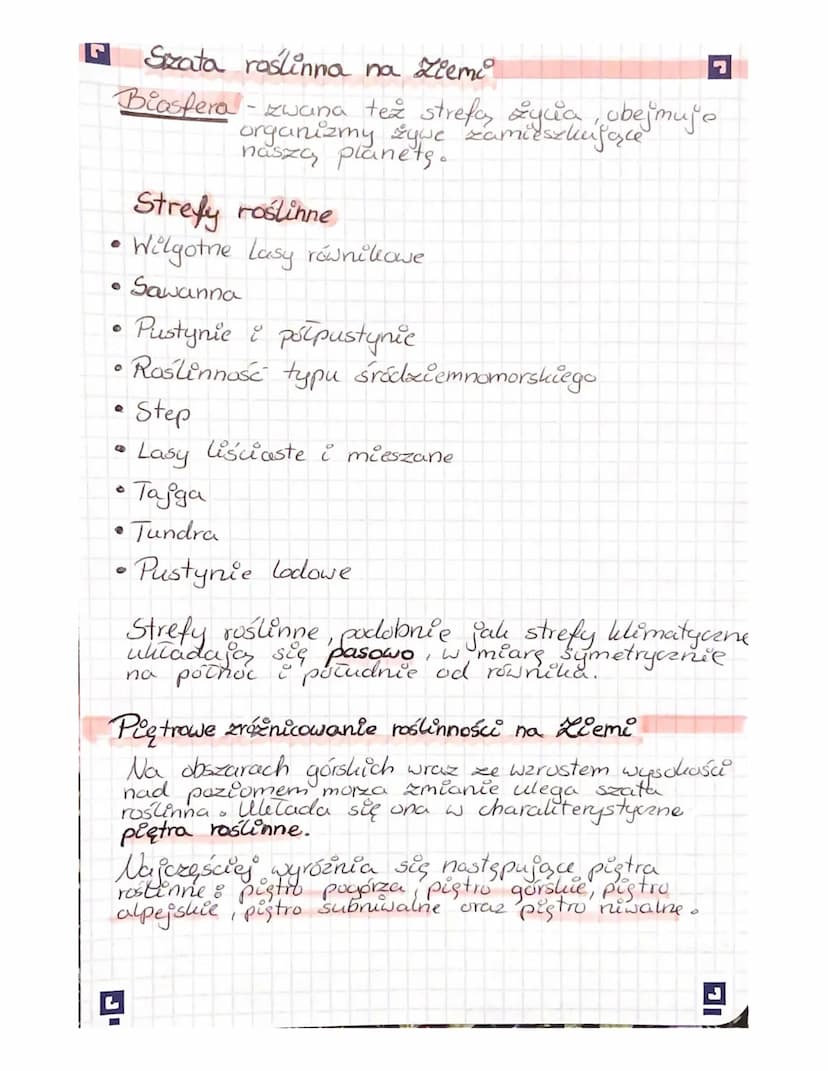 Szata roślinna na Ziemi
Biosfera - zwana też strefą życia, obejmuje
organizmy żywe zamieszkujące
naszą planetę.
Strefy roślinne
• Wilgotne lasy równikowe
• Sawanna
• Pustynie i półpustynie
• Roślinność typu śródziemnomorskiego
• Step
• Lasy liściaste i mieszane
• Tajga
• Tundra
• Pustynie lodowe
Strefy roślinne, podobnie jak strefy klimatyczne
układają się pasowo, w miarę symetrycznie
na północ i południe od równika.
Piętrowe zróżnicowanie roślinności na Ziemi
Na obszarach górskich wraz ze wzrostem wysokości
nad poziomem morza zmianie ulega szata
roślinna. Układa się ona w charakterystyczne
piętra roślinne.
Najczęściej wyróżnia się następujące piętra
roślinne: piętro pogórza, piętro górskie, piętro
alpejskie, piętro subniwalne oraz piętro niwalne.